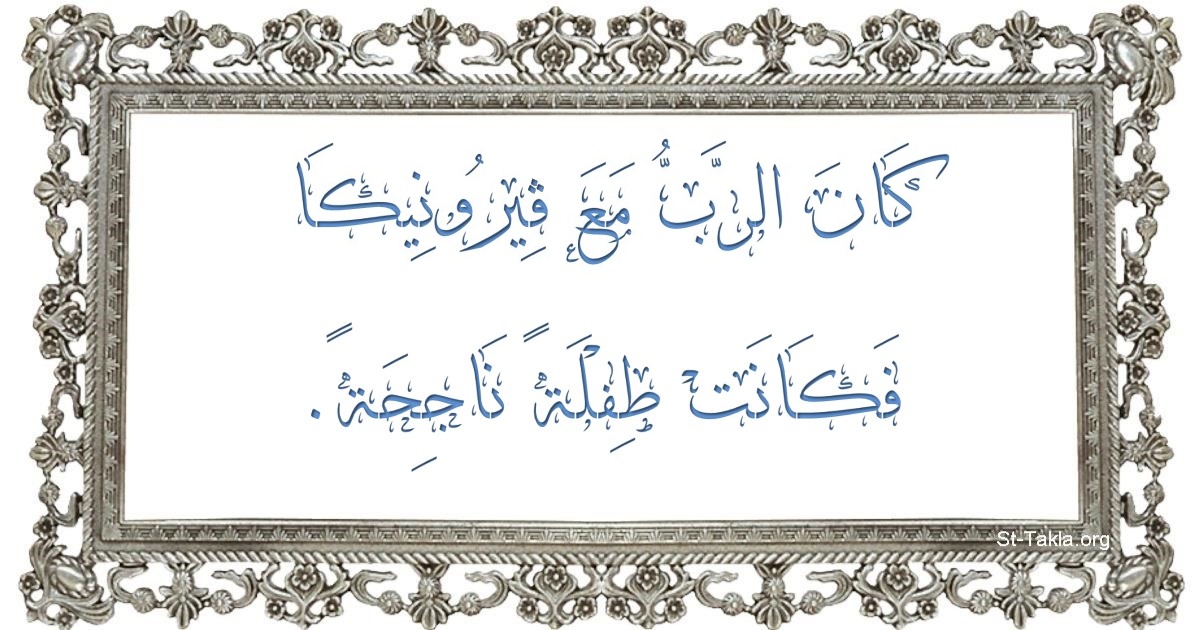 كَانَ الرَّبُّ مَعَ ڤِيرُونِيكَا
فَكَانَت طِفْلَةً نَاجِحَةً.
St-Takla.org